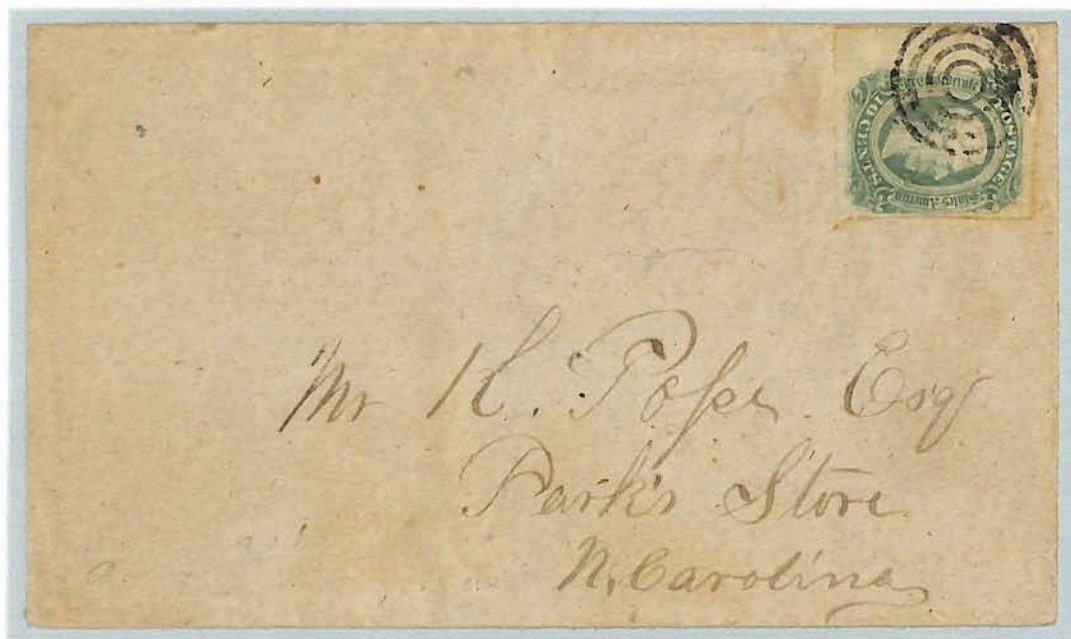 POSTAGE
CENTS
Mr K. Pope Esq
Parks Store
N. Carolina